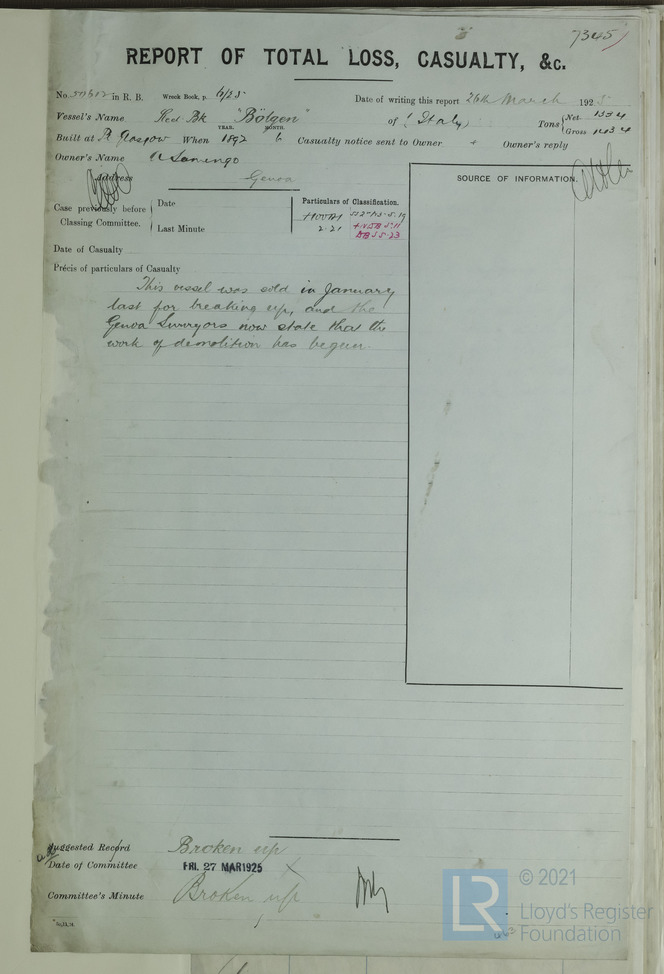 7345
REPORT OF TOTAL LOSS, CASUALTY, &c.
No. in R. B. Wreck Book, p. 6/25 Date of writing this report 26th March 1925
Vessel's Name Bk "Bölgen" of (Italy) Tons Net 1334
Gross
Built at Pt Glasgow When YEAR. 1892 MONTH. 6 Casualty notice sent to Owner + Owner's reply
Owner's Name
Address Genoa
SOURCE OF INFORMATION.
Case previously before Classing Committee. Date
Last Minute
Particulars of Classification.
2.21
Date of Casualty
Précis of particulars of Casualty
This vessel was sold in January
last for breaking up, and the
Genoa Surveyors now state that the
work of demolition has begun.
Suggested Record Broken up
Date of Committee FRI. 27 MAR 1925
Committee's Minute Broken up
© 2021
LR Lloyd's Register
Foundation